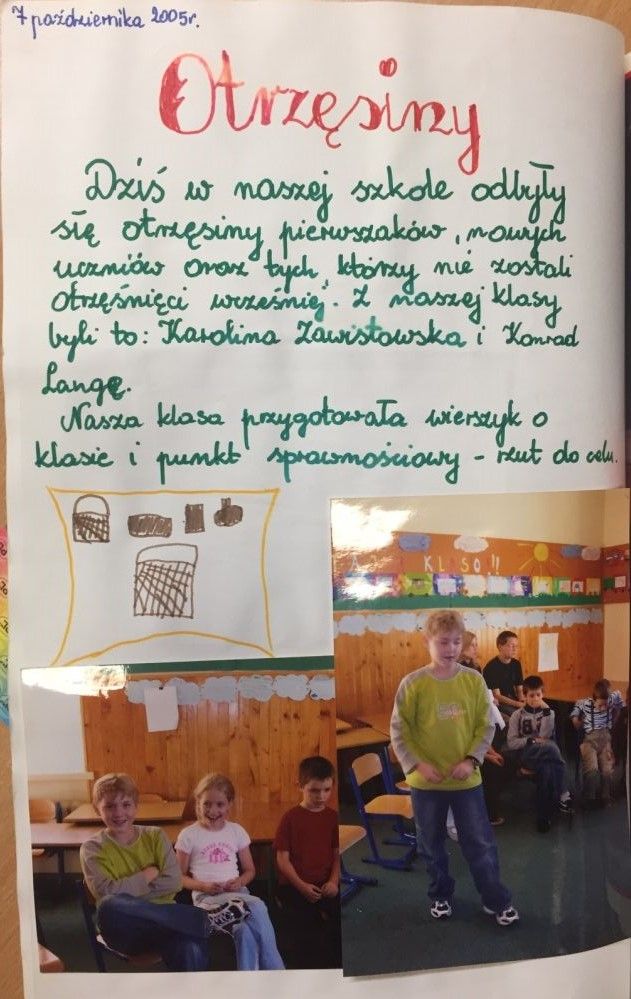 7 października 2005r.
Otrzęsiny
Dziś w naszej szkole odbyły
się otrzęsiny pierwszaków, nowych
uczniów oraz tych, którzy nie zostali
otrzęśnięci wrześniej. Z naszej klasy
byli to: Karolina Zawistowska i Konrad
Langę.
Nasza klasa przygotowała wierszyk o
klasie i punkt sprawnościowy - rzut do celu.
KLASO!!